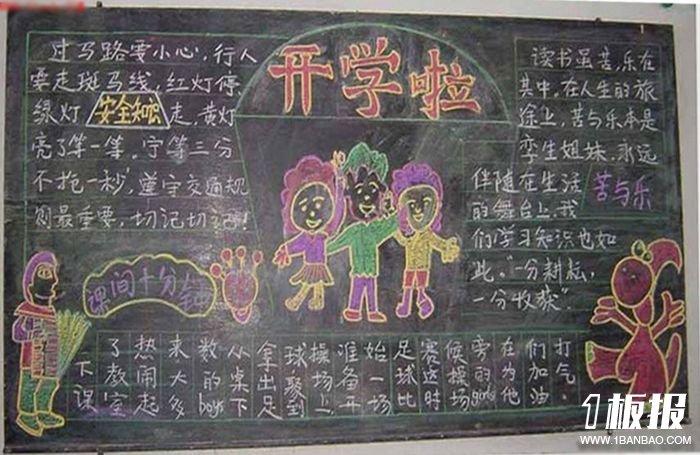 开学啦
过马路要小心,行人
要走斑马线,红灯停,
绿灯走,黄灯
亮了等一等。宁等三分
不抢一秒,遵守交通规
则最重要,切记切记!
安全知识
读书虽苦,乐在
其中,在人生的旅
途上,苦与乐本是
孪生姐妹,永远
伴随在生活
的舞台上,我
们学习知识也如
此。“一分耕耘,
一分收获”。
苦与乐
课间十分钟
下课
了教室
热闹起
来大多
数的boys
从桌下
拿出足
球聚到
操场上
准备开
始一场
足球比
赛这时
候操场
旁的girls
在为他
们加油
打气。
1板报
WWW.1BANBAO.COM